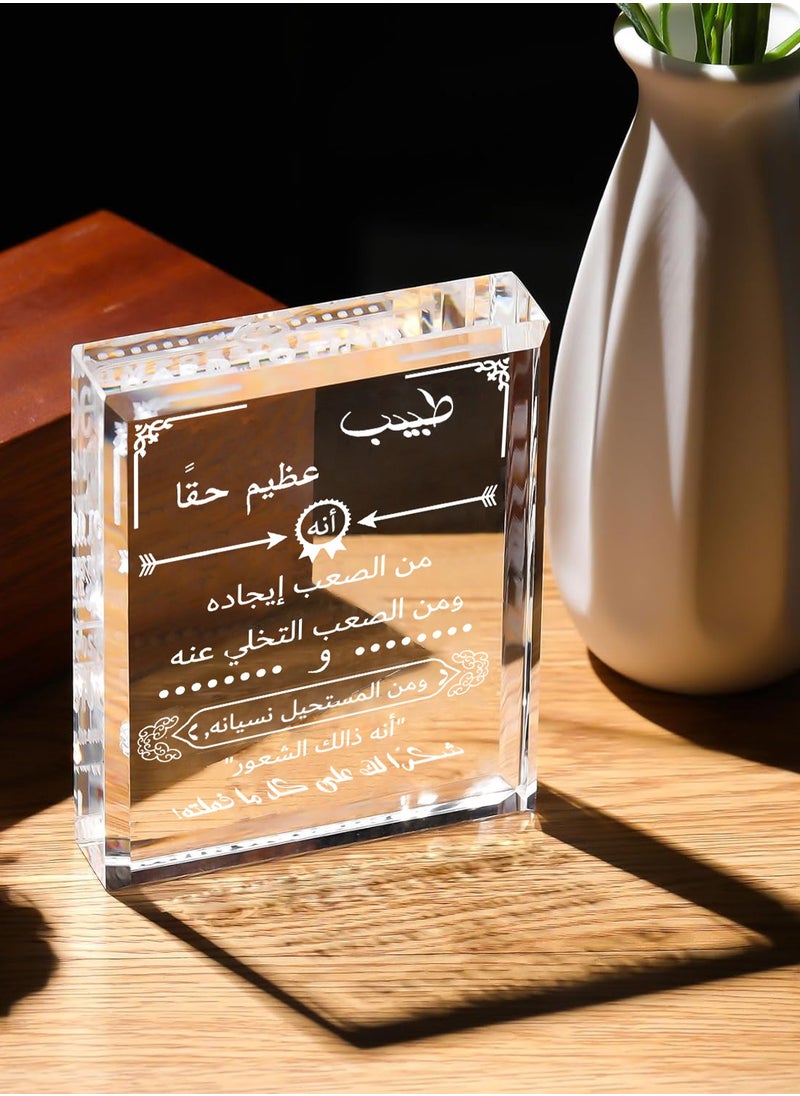 طبيب
عظيم حقًا
أنه
من الصعب إيجاده
ومن الصعب التخلي عنه
و
ومن المستحيل نسيانه,
"أنه ذالك الشعور"
شكرًا لك على كل ما فعلته!
HARD TO FIND